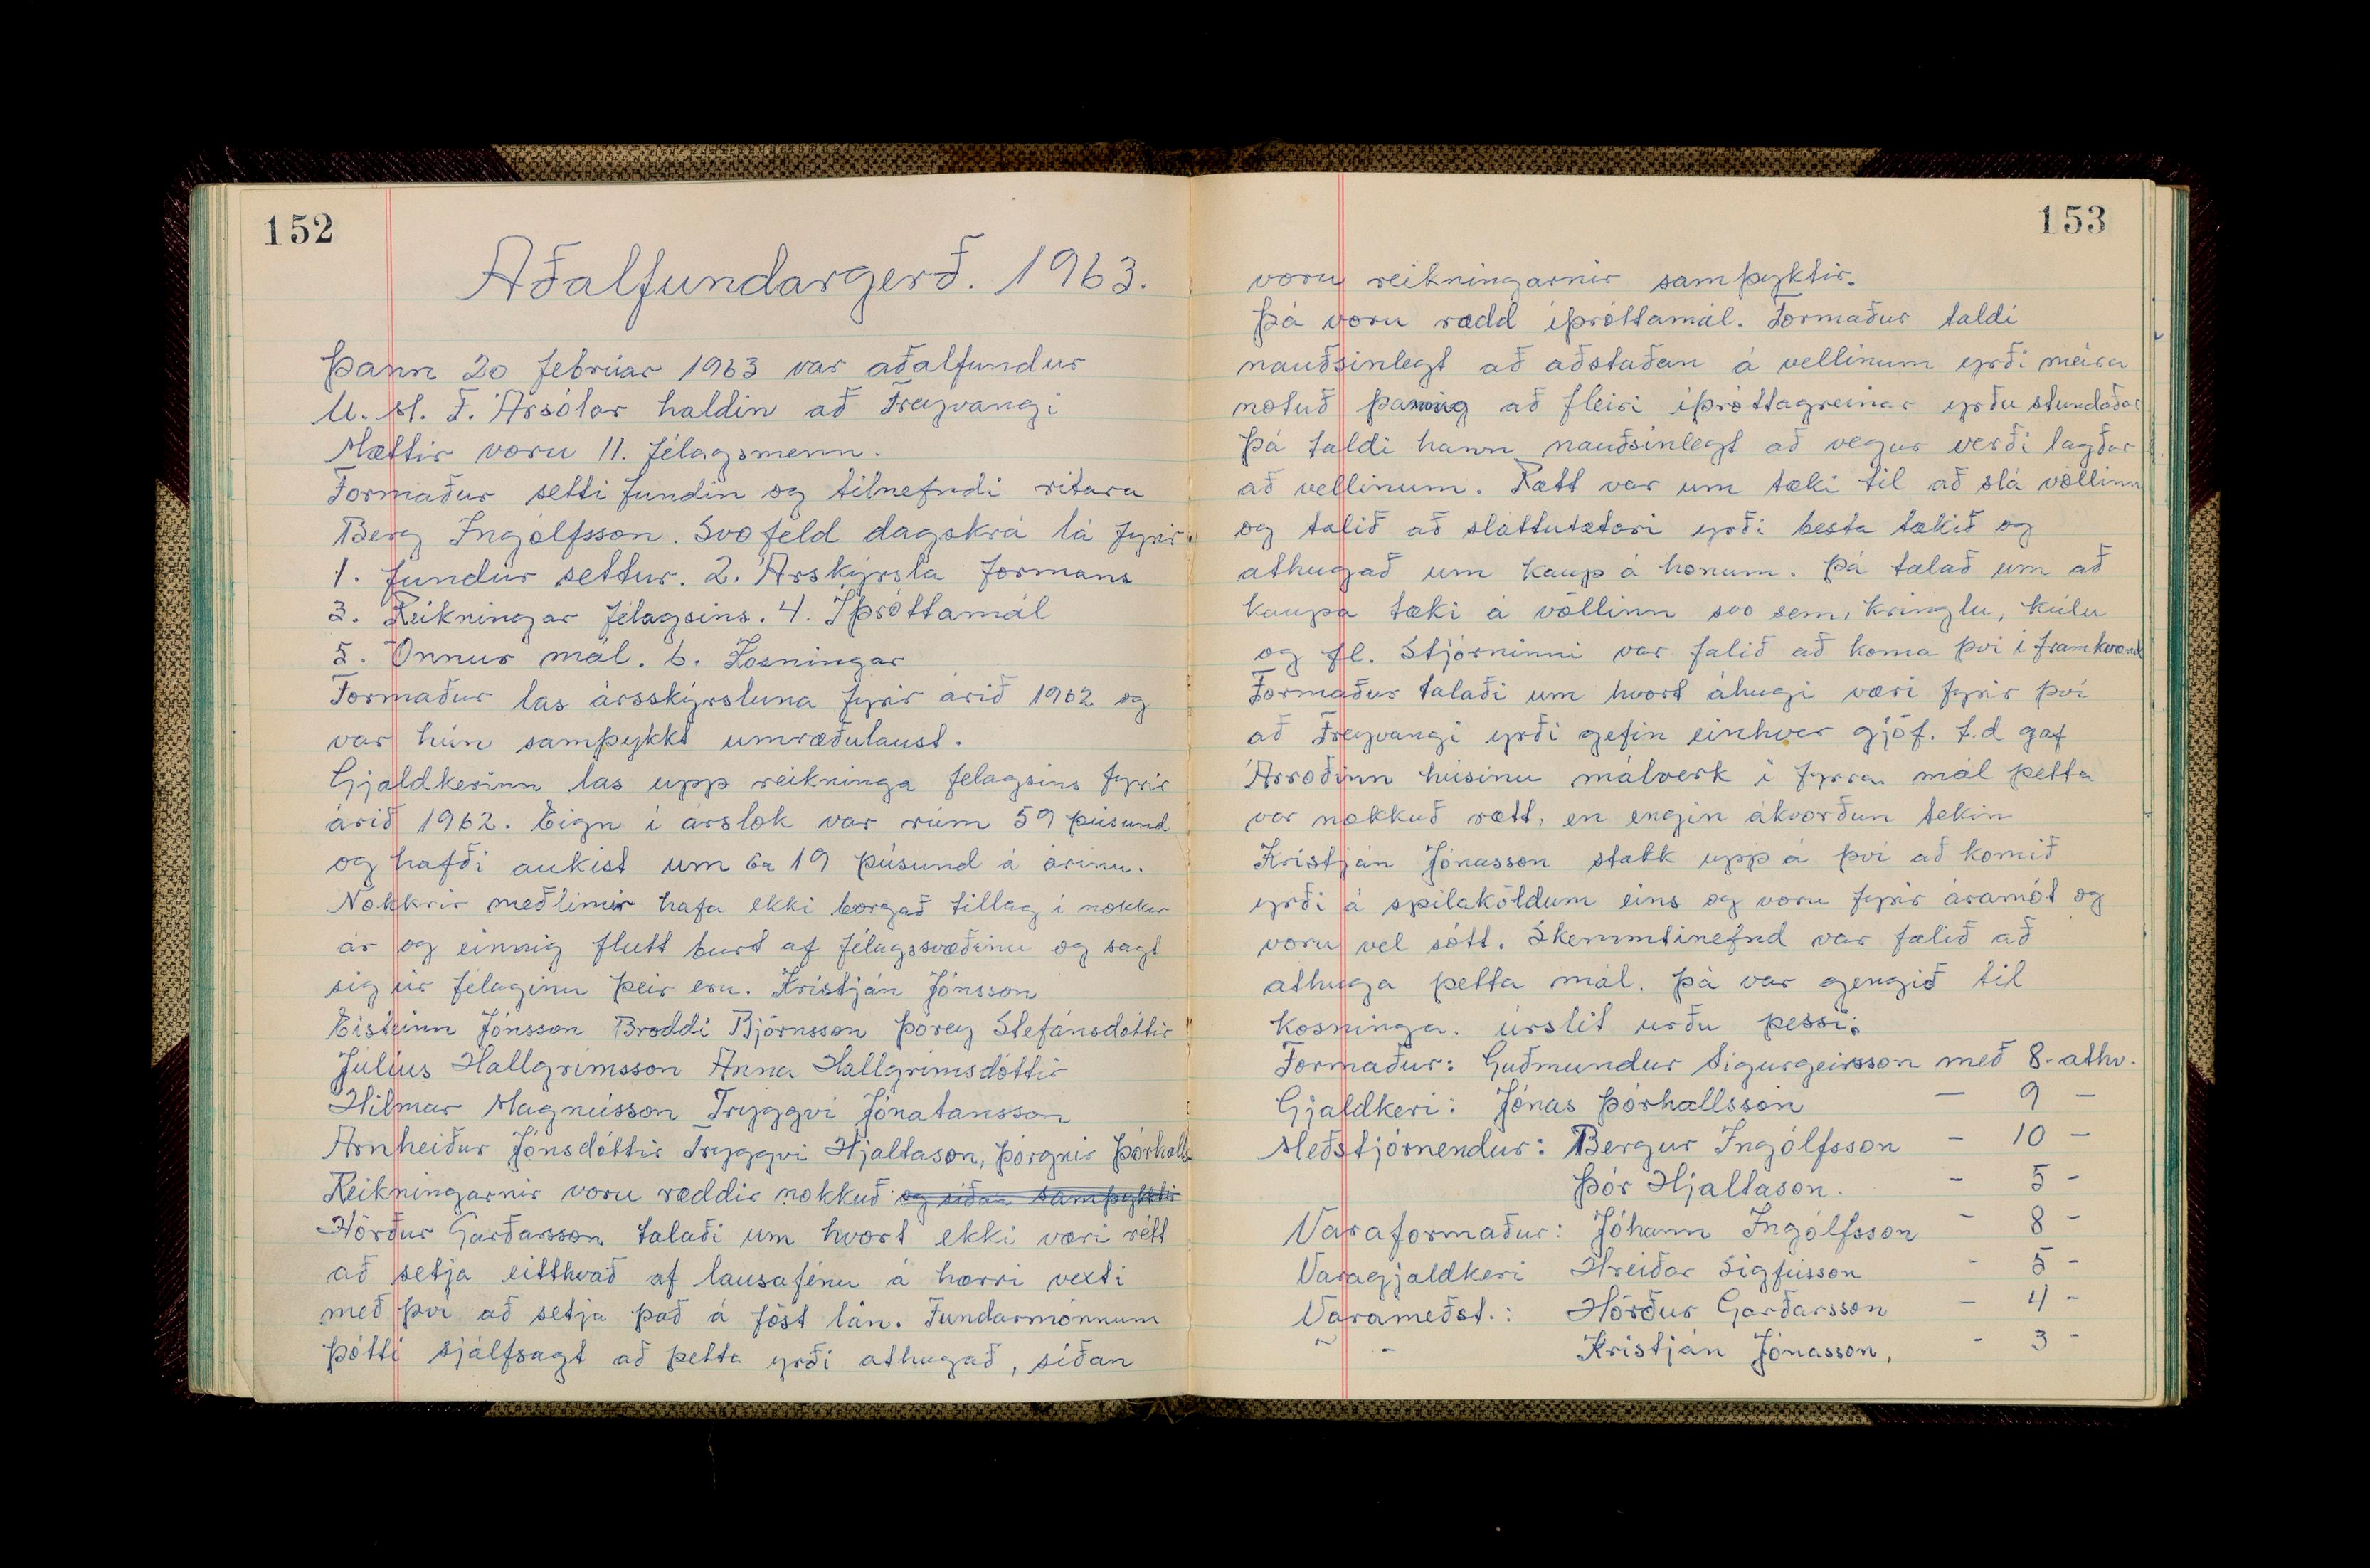 152
Aðalfundargerð. 1963.
Þann 20 febrúar 1963 var aðalfundur
U.M.F. Ársólar haldin að Freyvangi
Mættir voru 11. félagsmenn.
Formaður setti fundin og tilnefndi ritara
Berg Ingólfsson. Svofeld dagskrá lá fyrir.
1. fundur settur. 2. Árskýrsla formans
3. Reikningar félagsins. 4. Íþróttamál
5. Önnur mál. 6. Kosningar
Formaður las ársskýrsluna fyrir árið 1962 og
var hún samþykkt umræðulaust.
Gjaldkerinn las upp reikninga felagsins fyrir
árið 1962. Eign í árslok var rúm 59 þúsund
og hafði aukist um ca 19 þúsund á árinu.
Nokkrir meðlimir hafa ekki borgað tillag í nokkur
ár og einnig flutt burt af félagssvæðinu og sagt
sig úr félaginu þeir eru. Kristján Jónsson
Eisteinn Jónsson Broddi Björnsson Þórey Stefánsdóttir
Júlíus Hallgrímsson Anna Hallgrímsdóttir
Hilmar Magnússon Tryggvi Jónatansson
Arnheiður Jónsdóttir Tryggvi Hjaltason, Þórgnír Þórhalls
Reikningarnir voru ræddir nokkuð og síðan samþyktir
Hörður Garðarsson talaði um hvort ekki væri rétt
að setja eitthvað af lausafénu á hærri vexti
með því að setja það á föst lán. Fundarmönnum
þótti sjálfsagt að þetta yrði athugað, síðan
153
voru reikningarnir samþyktir.
Þá voru rædd íþróttamál. Formaður taldi
nauðsinlegt að aðstaðan á vellinum yrði meira
notuð þannig að fleiri íþróttagreinar yrðu stundaðar
Þá taldi hann nauðsinlegt að vegur verði lagður
að vellinum. Rætt var um tæki til að slá völlinn
og talið að sláttutætari yrði besta tækið og
athugað um kaup á honum. Þá talað um að
kaupa tæki á völlinn svo sem, kringlu, kúlu
og fl. Stjórninni var falið að koma því í framkvæmd
Formaður talaði um hvort áhugi væri fyrir því
að Freyvangi yrði gefin einhver gjöf. t.d gaf
Árroðinn húsinu málverk í fyrra. mál þetta
var nokkuð rætt, en engin ákvörðun tekin
Kristján Jónasson stakk upp á því að komið
yrði á spilaköldum eins og voru fyrir áramót og
voru vel sótt. Skemmtinefnd var falið að
athuga þetta mál. Þá var gengið til
kosninga. úrslit urðu þessi:
Formaður: Guðmundur Sigurgeirsson með 8-athv.
Gjaldkeri: Jónas Þórhallsson — 9 —
Meðstjórnendur: Bergur Ingólfsson — 10 —
Þór Hjaltason. - 5 -
Varaformaður: Jóhann Ingólfsson - 8 -
Varagjaldkeri Hreiðar Sigfússon - 5 -
Varameðst.: Hörður Garðarsson — 4 -
~ - Kristján Jónasson, - 3 -